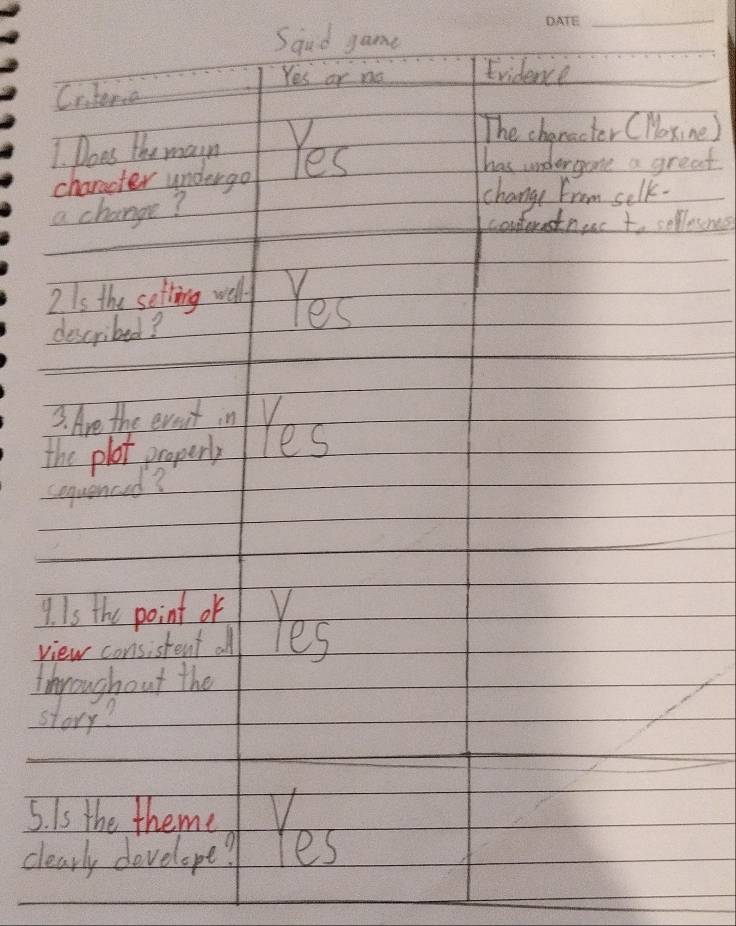 DATE
Squid game
Criteria
Yes or no
Evidence
1. Does the main
character undergo
a change?
Yes
The character (Maxine)
has undergone a great
change from self-
to selflessness
2. Is the setting well-
described?
Yes
3. Are the event in
the plot properly
sequenced?
Yes
4. Is the point of
view consistent all
throughout the
story?
Yes
5. Is the theme
clearly develope?
Yes